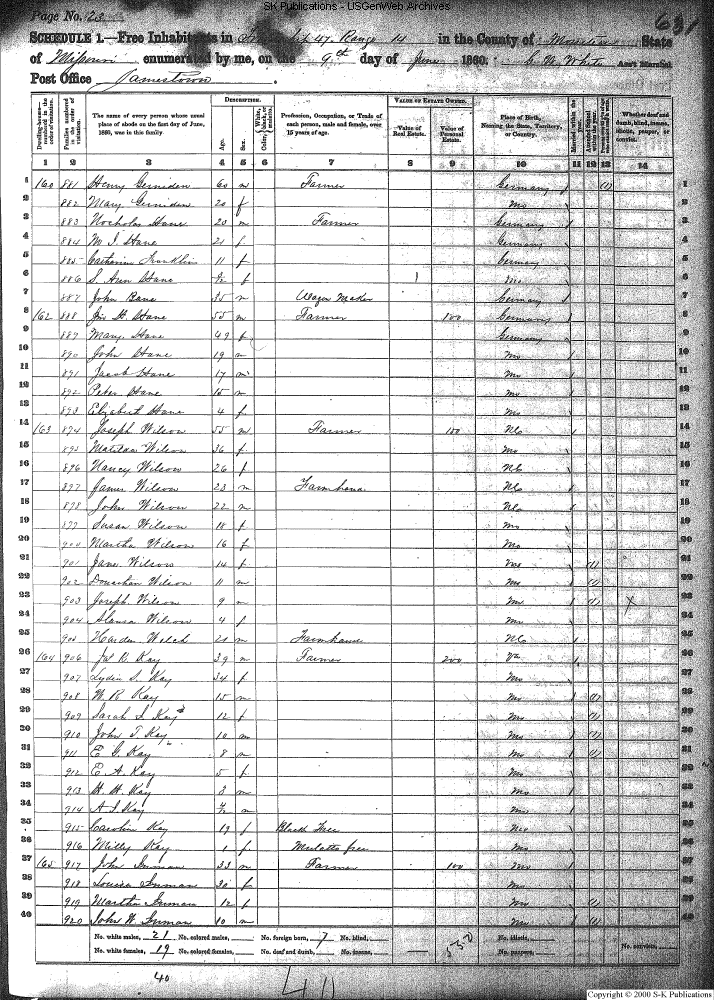 SK Publications - USGenWeb Archives
Page No. 23
631
SCHEDULE 1.—Free Inhabitants in Township 47, Range 14 in the County of Moniteau State
of Missouri enumerated by me, on the 9th day of June 1860. C. W. White Ass't Marshal
Post Office Jamestown.
Dwelling-house—numbered in the order of visitation.
Families numbered in the order of visitation.
The name of every person whose usual place of abode on the first day of June, 1860, was in this family.
DESCRIPTION.
Age.
Sex.
Color, White, black, or mulatto.
Profession, Occupation, or Trade of each person, male and female, over 15 years of age.
VALUE OF ESTATE OWNED.
Value of Real Estate.
Value of Personal Estate.
Place of Birth, Naming the State, Territory, or Country.
Married within the year.
Whether deaf and dumb, blind, insane, idiotic, pauper, or convict.
1 2 3 4 5 6 7 8 9 10 11 12 13 14
1 160 881 Henry 60 m Farmer Germany / (1) 1
2 882 Mary 20 f Mo 2
3 883 Nocholas Hane 23 m Farmer Germany / 3
4 884 M. J. Hane 21 f Germany 4
5 885 Catherin Franklin 11 f Germany 5
6 886 S. Ann Hane f Mo 6
7 887 John Bane 35 m Wagon Maker Germany / 7
8 162 888 H. Hane 55 m Farmer 100 Germany / 8
9 889 Mary Hane 49 f Germany 9
10 890 John Hane 19 m Mo / 10
11 891 Jacob Hane 17 m Mo / 11
12 892 Peter Hane 15 m Mo / 12
13 893 Elizabeth Hane 4 f Mo 13
14 163 894 Joseph Wilson 55 m Farmer 100 NC / 14
15 895 Matilda Wilson 36 f Mo 15
16 896 Nancy Wilson 26 f NC 16
17 897 James Wilson 23 m Farmhand NC / 17
18 898 John Wilson 22 m NC / 18
19 899 Susan Wilson 18 f Mo 19
20 900 Martha Wilson 16 f Mo 20
21 901 Jane Wilson 14 f Mo (1)
22 902 Wilson 11 m Mo / (1)
23 903 Joseph Wilson 9 m Mo / (1) X
24 904 Wilson 4 f Mo
25 905 Harden Welch 21 m Farmhand NC /
26 164 906 Jas K. Kay 39 m Farmer 200 Va /
27 907 Lydia S. Kay 34 f Mo
28 908 W. R. Kay 15 m Mo / (1)
29 909 Sarah J. Kay 12 f Mo (1)
30 910 John T. Kay 10 m Mo / (1)
31 911 E. G. Kay 8 m Mo / (1)
32 912 E. A. Kay 5 f Mo
33 913 H. H. Kay 3 m Mo
34 914 A. J. Kay m Mo
35 915 Carolin Kay 19 f Black Free Mo
36 916 Milly Kay 1 f Mulatto free Mo
37 165 917 John Inman 33 m Farmer 100 Mo /
38 918 Louisa Inman 30 f Mo
39 919 Martha Inman 12 f Mo (1)
40 920 John W. Inman 10 m Mo
No. white males, 21 No. colored males, No. foreign born, 7 No. blind, 530 No. idiotic,
No. white females, 19 No. colored females, No. deaf and dumb, No. insane, No. paupers, No. convicts,
40
Copyright © 2000 S-K Publications